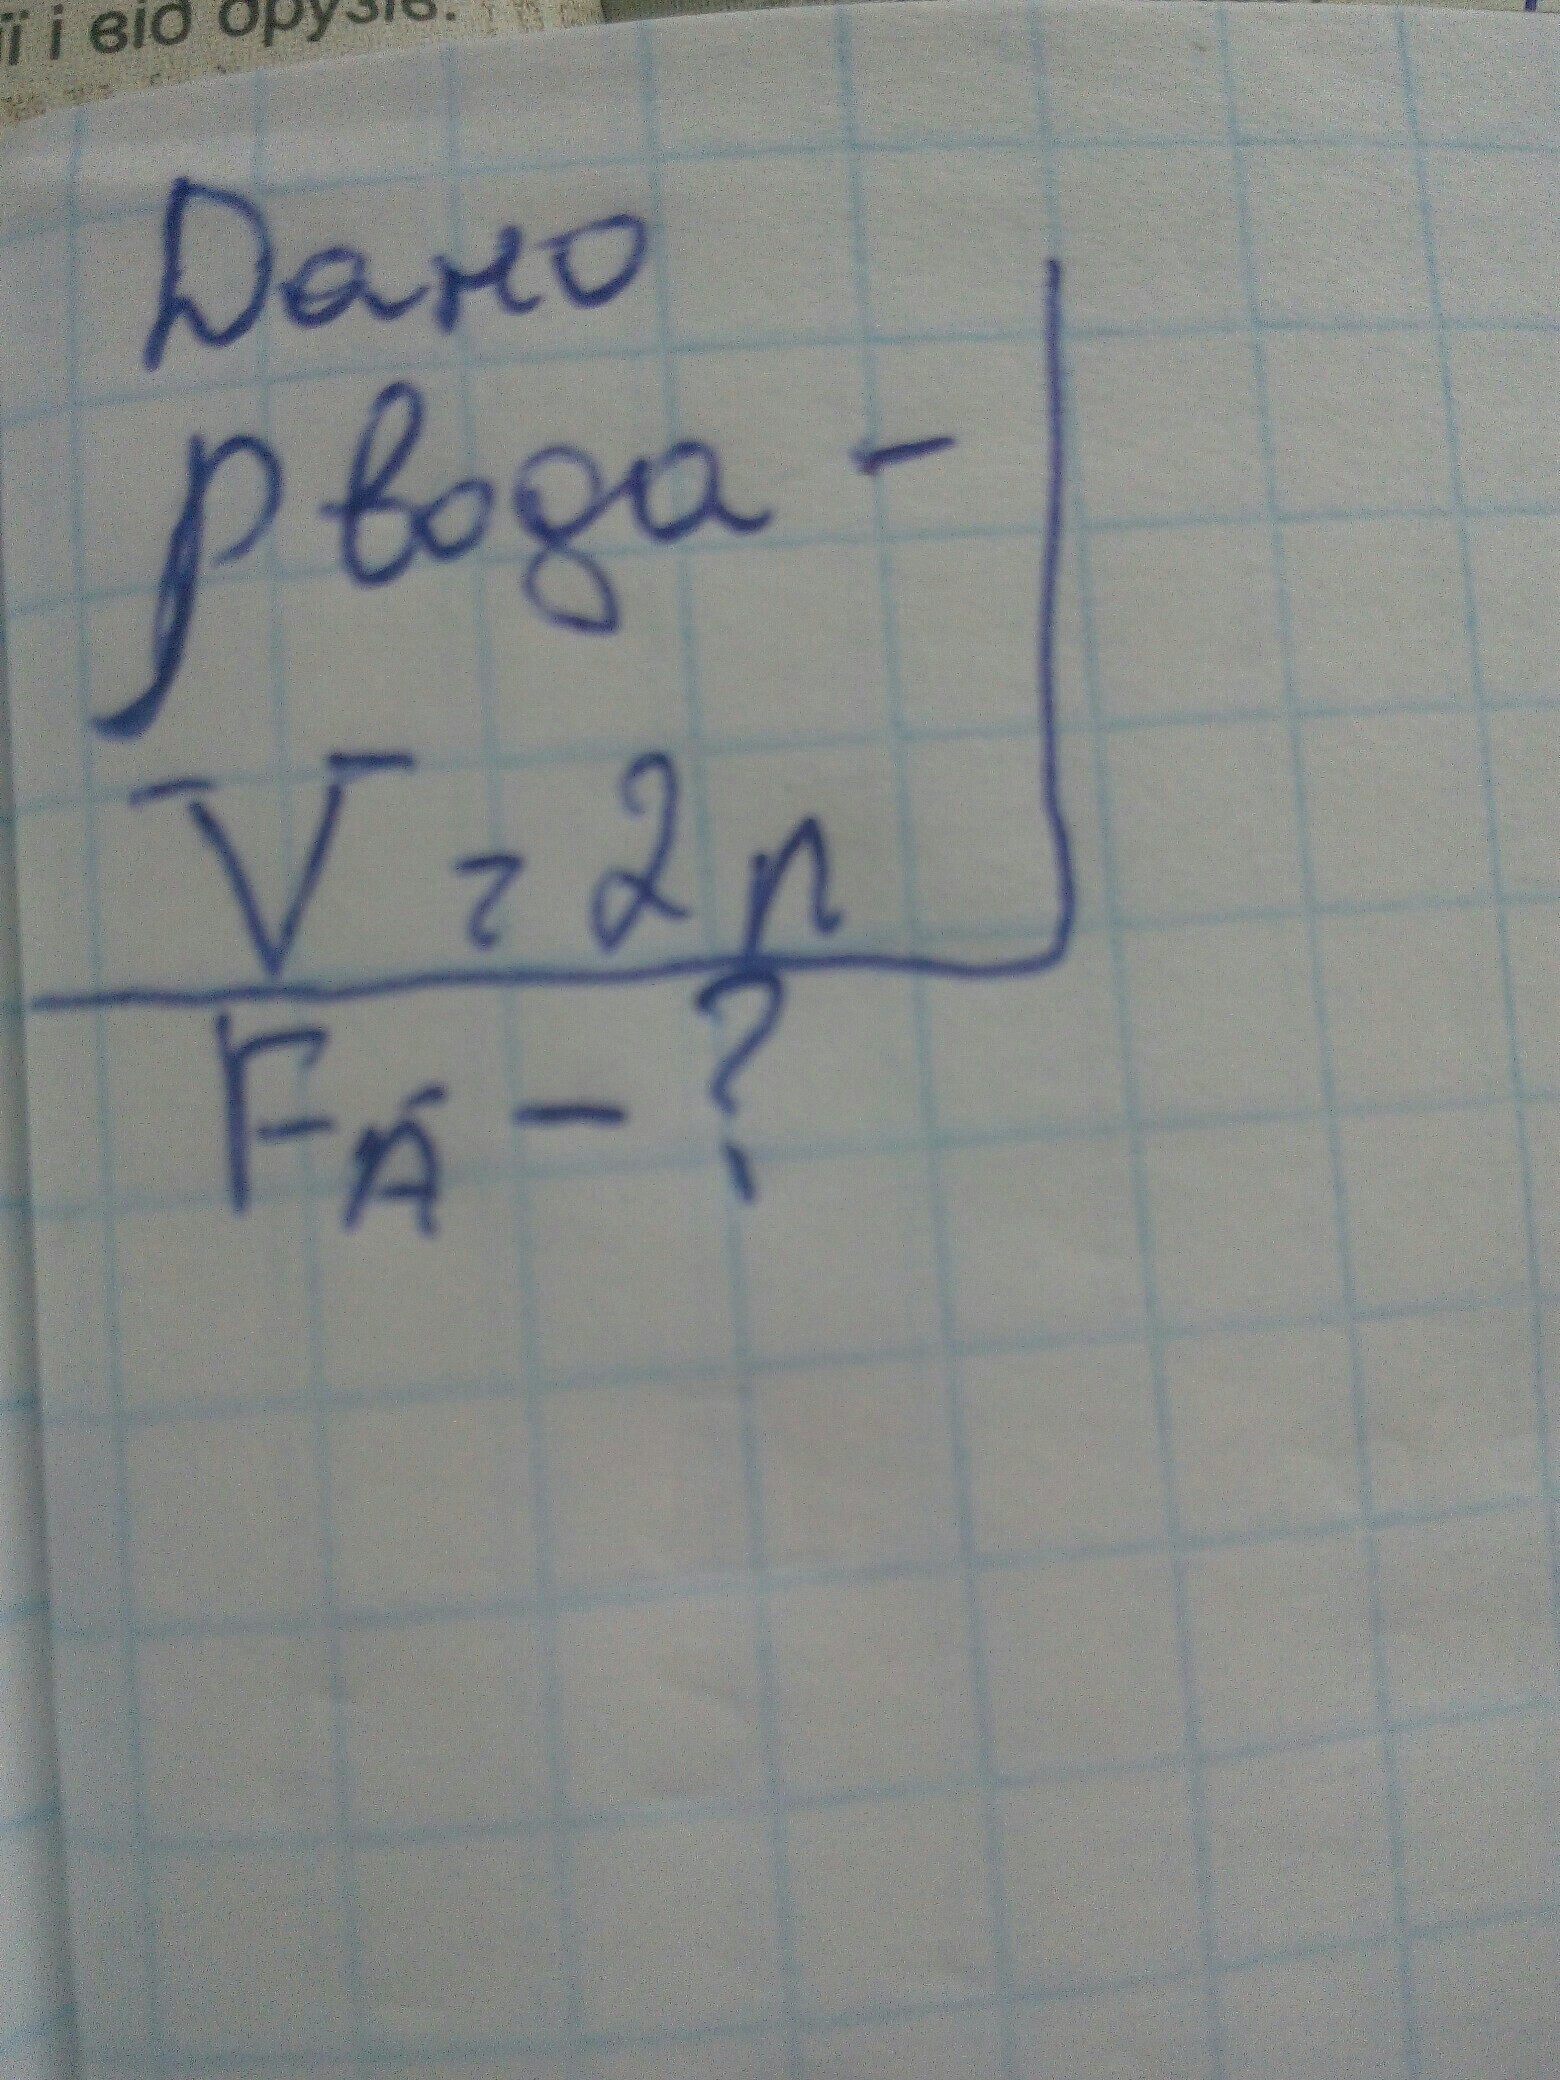 її і від друзів.
Дано
ρ вода -
V = 2 л
FA - ?